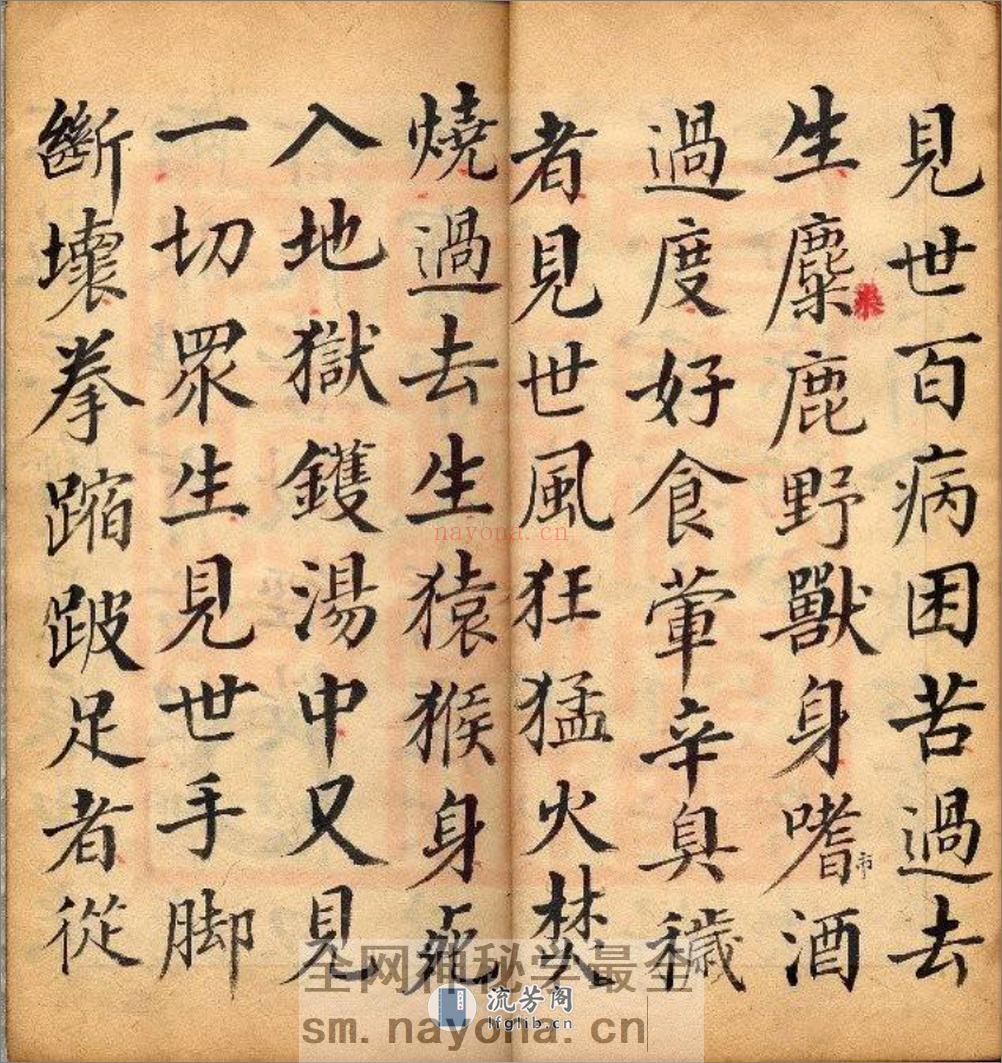 見世百病困苦過去
生麋鹿野獸身嗜酒
市
過度好食葷辛臭穢
者見世風狂猛火焚
燒過去生猿猴身死
入地獄鑊湯中又見
一切眾生見世手腳
斷壞拳蹜跛足者從
nayona.cn
全网神秘学最全
sm.nayona.cn
流芳阁
lfglib.cn